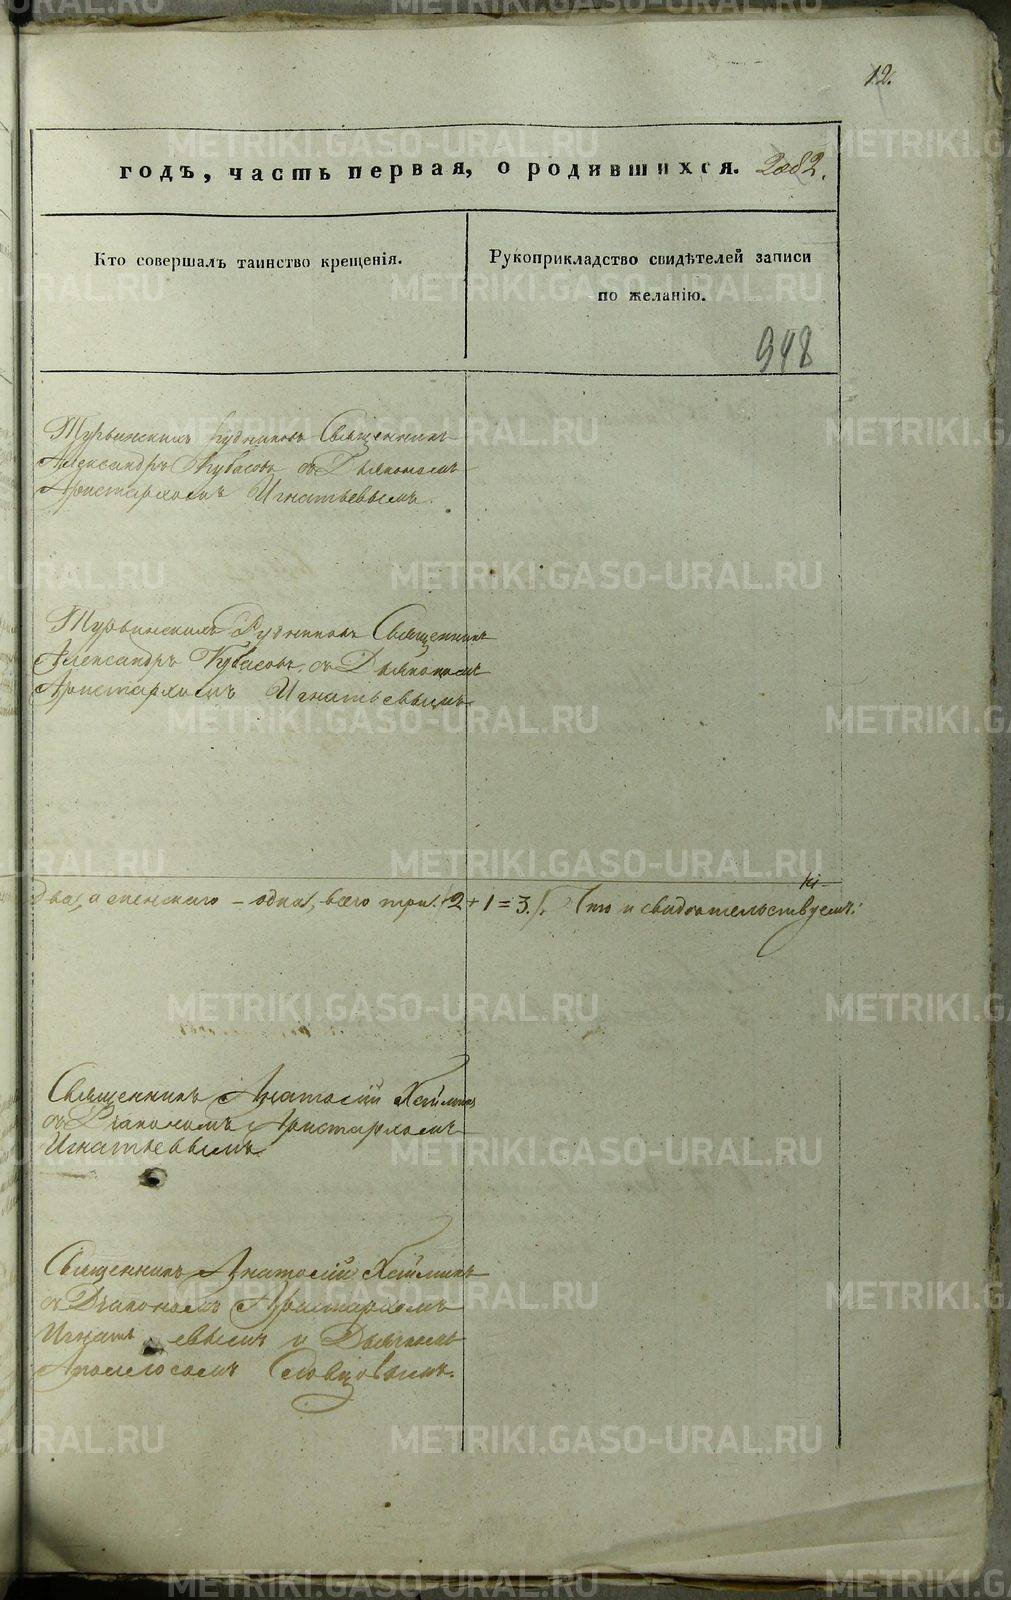 12.
годъ, часть первая, о родившихся. 2082.
Кто совершалъ таинство крещенія.
Рукоприкладство свидѣтелей записи
по желанію.
948
Турьинскихъ Рудниковъ Священникъ
Александръ Кубасовъ съ Дьякономъ
Аристархомъ Игнатьевымъ.
Турьинскихъ Рудниковъ Священникъ
Александръ Кубасовъ съ Дьякономъ
Аристархомъ Игнатьевымъ
два, а женскаго – одна, всего три. 2+1=3. Что и свидѣтельствуемъ:
Священникъ Анатолій Хатлинъ
съ Діакономъ Аристархомъ
Игнатьевымъ
Священникъ Анатолій Хатлинъ
съ Діакономъ Аристархомъ
Игнатьевымъ и Дьячкомъ
Аполлосомъ Словцовымъ.
METRIKI.GASO-URAL.RU